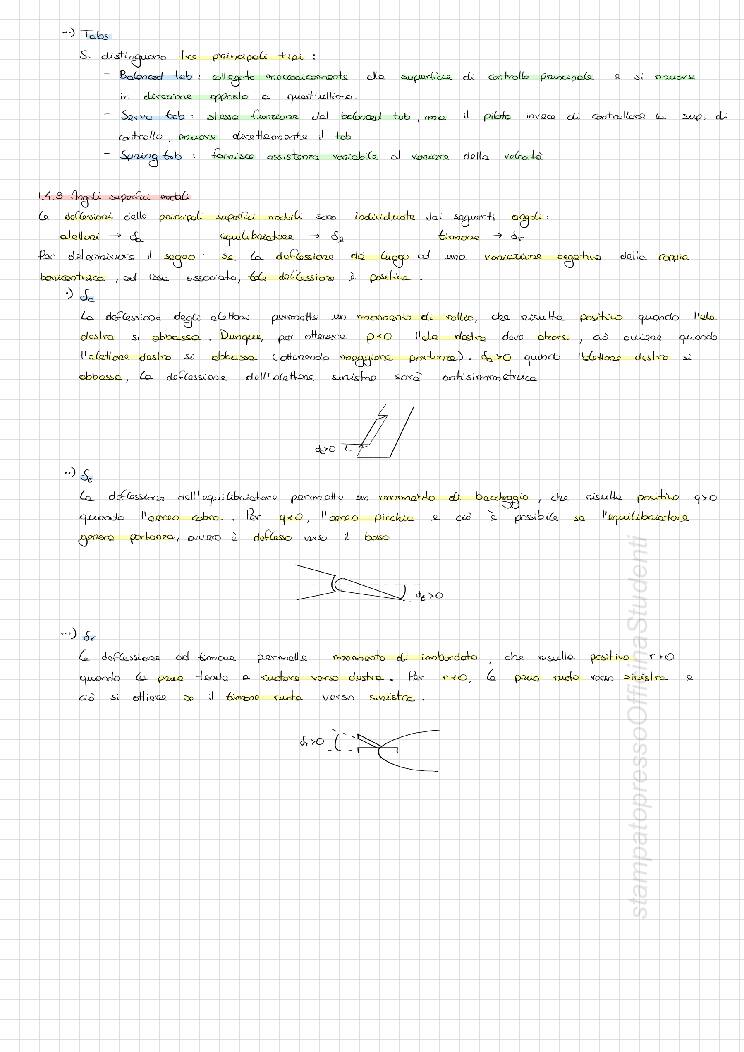 ··) Tabs
Si distinguono tre principali tipi :
- Balanced tab : collegato meccanicamente alla superficie di controllo principale e si muove
in direzione opposta a quest'ultima.
- Servo tab : stessa funzione del balanced tab, ma il pilota invece di controllare la sup. di
controllo, muove direttamente il tab
- Spring tab : fornisce assistenza variabile al variare della velocità
1.4.3 Angoli superfici mobili
Le deflessioni delle principali superfici mobili sono individuate dai seguenti angoli:
alettoni → δa equilibratore → δe timone → δr
Per determinare il segno: se la deflessione dà luogo ad una variazione negativa della coppia
baricentrica, ad essa associata, tale deflessione è positiva.
·) δa
La deflessione degli alettoni permette un momento di rollio, che risulta positivo quando l'ala
destra si abbassa. Dunque, per ottenere p<0 l'ala destra deve alzarsi, ciò avviene quando
l'alettone destro si abbassa (ottenendo maggiore portanza). δa>0 quando l'alettone destro si
abbassa, la deflessione dell'alettone sinistro sarà antisimmetrica
δa>0
··) δe
La deflessione dell'equilibratore permette un momento di beccheggio, che risulta positivo q>0
quando l'aereo cabra. Per q<0, l'aereo picchia e ciò è possibile se l'equilibratore
genera portanza, ovvero è deflesso verso il basso
δe>0
···) δr
La deflessione del timone permette momento di imbardata, che risulta positivo r>0
quando la prua tende a ruotare verso destra. Per r<0, la prua ruota verso sinistra e
ciò si ottiene se il timone ruota verso sinistra.
δr>0
stampatopressoOfficinaStudenti